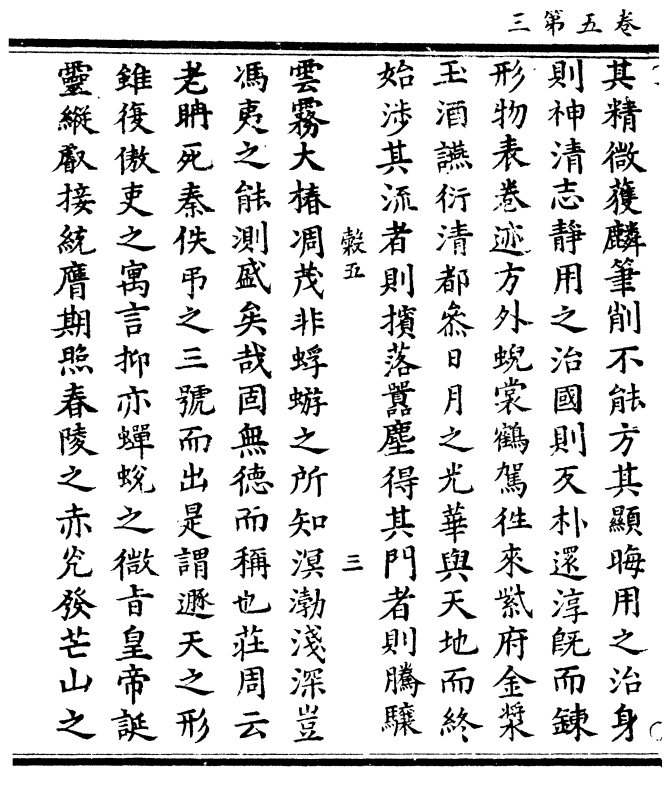 卷五第三
其精微蒦麟筆削不能方其顯晦用之治身
則神清志靜用之治國則反朴還淳旣而鍊
形物表卷迹方外蜺裳鶴駕徃來紫府金漿
玉酒讌衍清都叅日月之光華與天地而終
始涉其流者則擯落囂塵得其門者則騰驤
縠五
三
雲霧大椿凋茂非蜉蝣之所知溟渤淺深豈
馮夷之能測盛矣哉固無德而稱也莊周云
老聃死秦佚弔之三號而出是謂遯天之形
雖復傲吏之寓言抑亦蟬蛻之微旨皇帝誕
靈縱叡接統膺期照春陵之赤光發芒山之